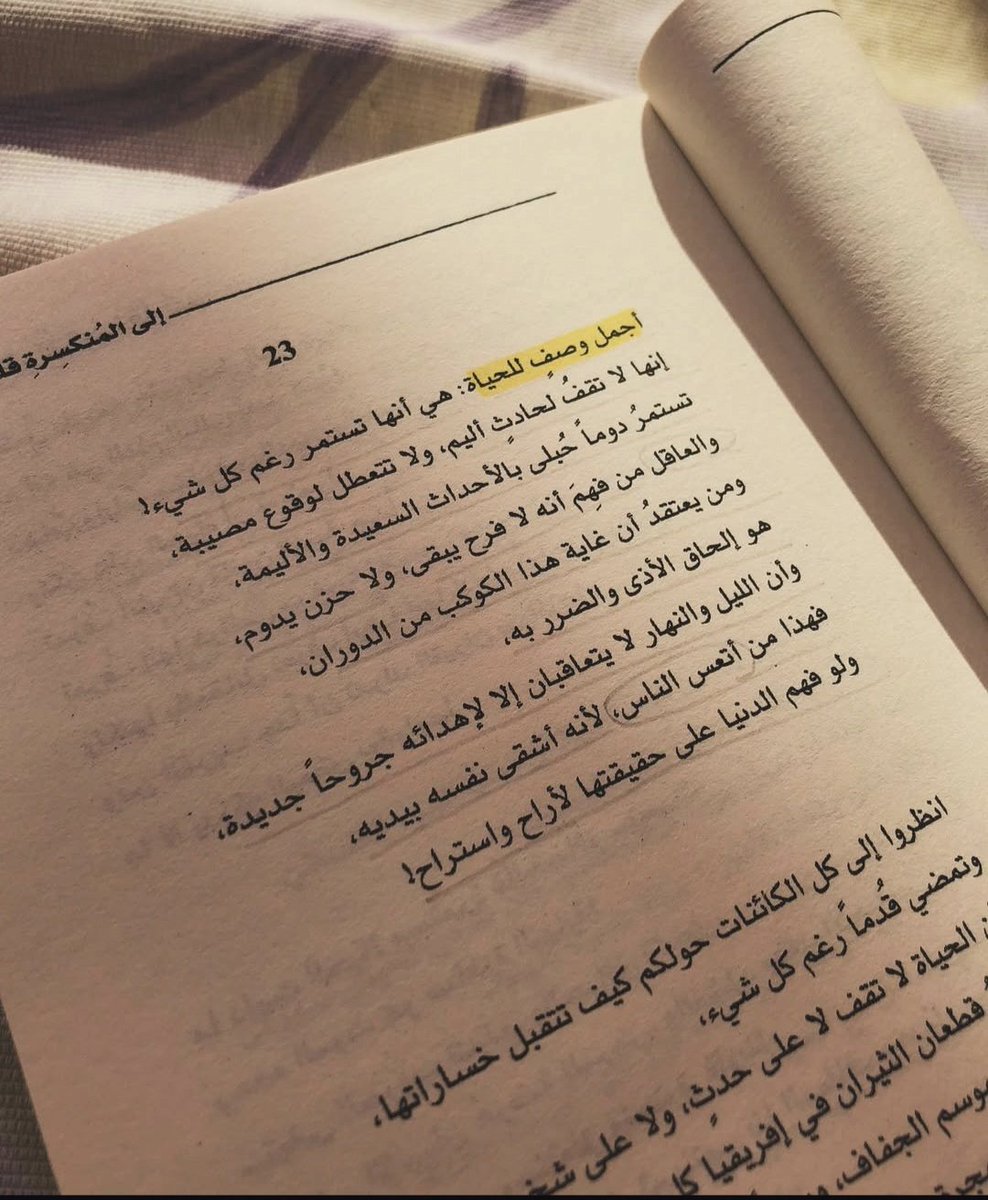 إلى المُنكسِرةِ
23
أجمل وصفٍ للحياة: هي أنها تستمر رغم كل شيء!
إنها لا تقفُ لحادثٍ أليم، ولا تتعطل لوقوع مصيبة،
تستمرُ دوماً حُبلى بالأحداث السعيدة والأليمة،
والعاقل من فهِمَ أنه لا فرح يبقى، ولا حزن يدوم،
ومن يعتقدُ أن غاية هذا الكوكب من الدوران،
هو إلحاق الأذى والضرر به،
وأن الليل والنهار لا يتعاقبان إلا لإهدائه جروحاً جديدة،
فهذا من أتعس الناس، لأنه أشقى نفسه بيديه،
ولو فهم الدنيا على حقيقتها لأراح واستراح!
انظروا إلى كل الكائنات حولكم كيف تتقبل خساراتها،
وتمضي قُدماً رغم كل شيء،
الحياة لا تقف لا على حدثٍ، ولا على
قطعان الثيران في إفريقيا
موسم الجفاف،